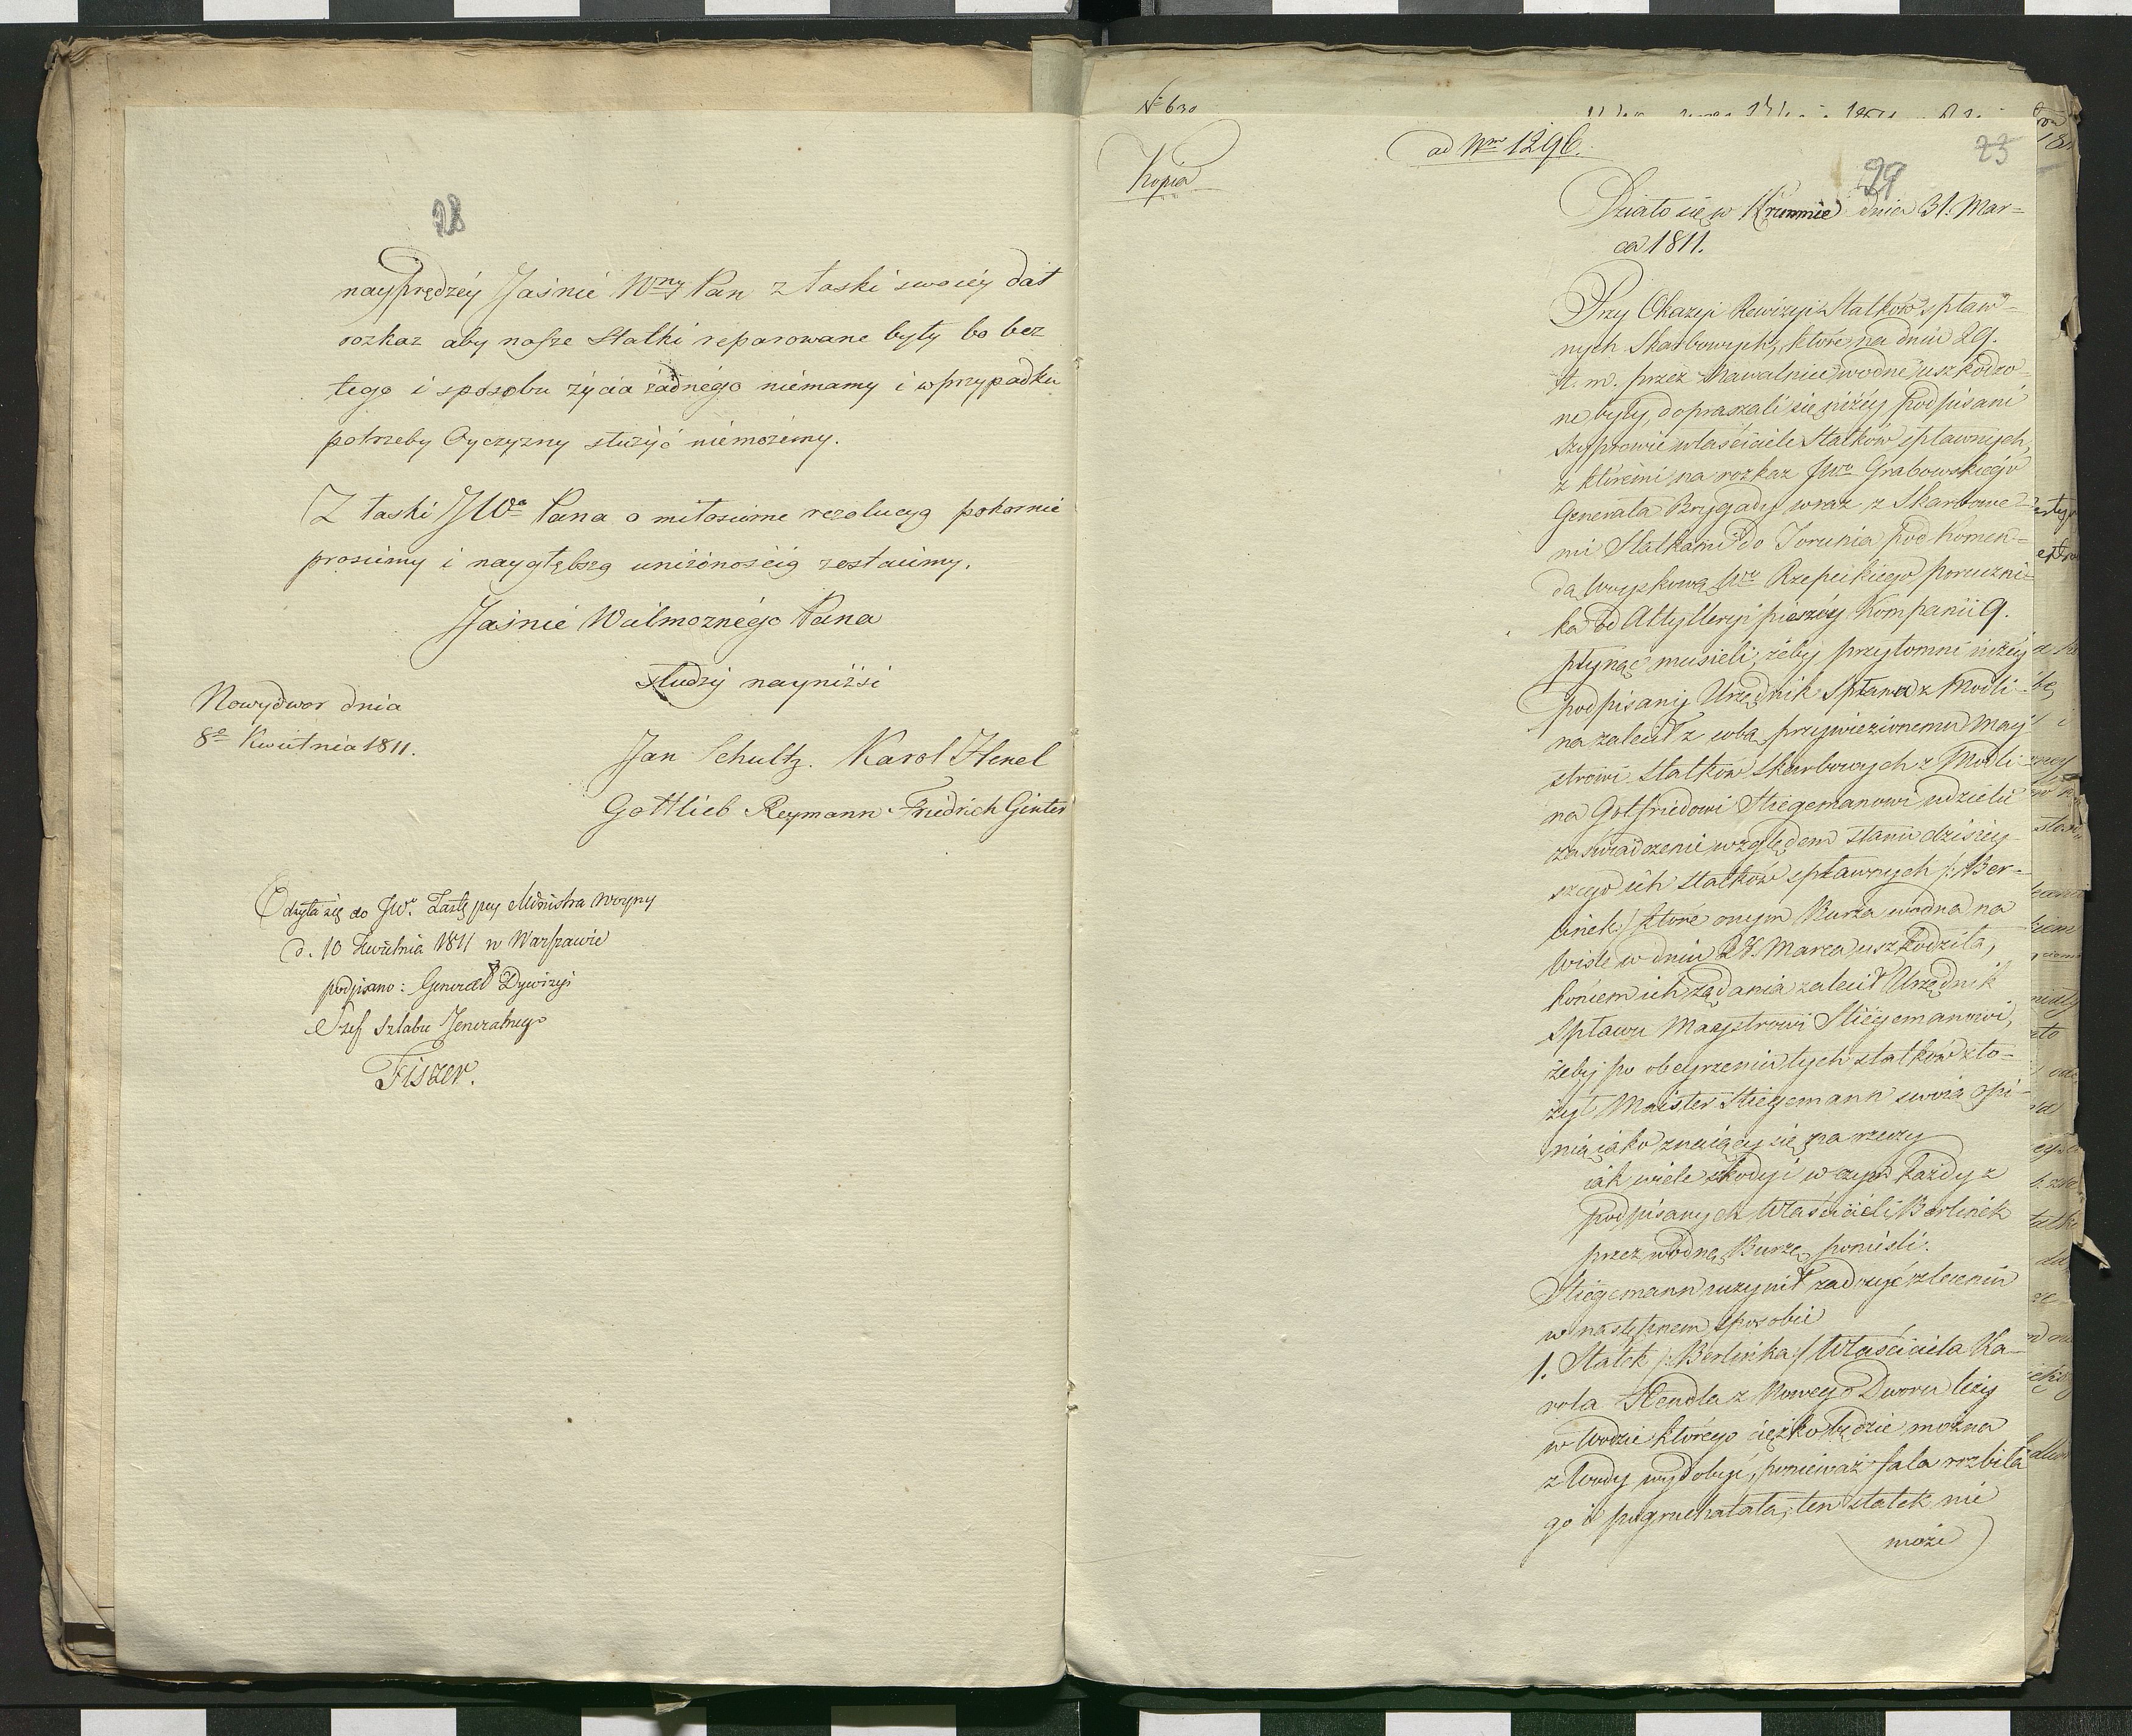 28
nayprędzéy Jaśnié Wny Pan z łaski swoiéy dał
rozkaz aby nasze Statki reparowane były bo bez
tego i sposobu życia żadnégo niémamy i w przypadku
potrzeby Oyczyzny służyć niémożémy.
Z łaski JWo Pana o miłosierne rezolucyą pokornie
prosiemy i naygłębszą uniżonością zestaiemy.
Jaśnié Wielmoznégo Pana
słudzy nayniżsi
Nowydwor dnia
8o Kwietnia 1811.
Jan Schultz. Karol Henel
Gottlieb Reymann Friedrich Ginter
Odzyła się do JWo Zastępcy Ministra Woyny
d. 10 Kwietnia 1811 w Warszawie
podpisano: Generał Dywizyi
Szef Sztabu Jeneralnego
Fiszer.
No 630
Kopia
ad Nrm 1296.
23
29
Działo się w Krummie dnia 31. Mar=
ca 1811.
Przy Okazyi Rewizyi Statków spław=
nych Skarbowych, które na dniu 29.
t. m. przez Nawalnice wodne uszkodzo=
ne były, dopraszali się niżéy podpisani
Szyprowie właściciele Statków spławnych,
z któremi na rozkaz Jwo Grabowskiego
Generała Brygady wraz z Skarbowe=
mi Statkami do Torunia pod Komen=
dą Woyskową Wo Rzepeckiego porucznі=
ka od Attylleryi pieszéy Kompanii 9.
płynąć musieli, żeby przytomni niżéy
podpisany Urzędnik Spławu z Modli=
na zalecił z sobą przywiezionemu May=
strowi Statków Skarbowych z Modli=
na Gotfriedowi Stiegemanowi udzielić
zaświadczenie względem stanu dzisiey=
szego ich statków spławnych /: Ber=
linek :/ które onym Burza wodna na
Wiśle w dniu 28. Marca uszkodziła,
końcem ich żądania zalecił Urzędnik
Spławu Maystrowi Stiegemanowi,
żeby po obeyrzeniu tych statków zło=
żył Maister Stiegemann swoią opi=
nią iako znaiący się na rzeczy
iak wiele szkody i w czym każdy z
podpisanych Właścicieli Berlinek
przez wodną Burzę ponieśli.
Stiegemann uczynił zadosyć zleceniu
w następnem sposobie
1. Statek /: Berlinka :/ Właściciela Ka=
rola Hendla z Nowego Dworu leży
w Wodzie którego ciężko będzie można
z Wody wydobyć, ponieważ fala rozbiła
go i pogruchotała, ten statek nie
może